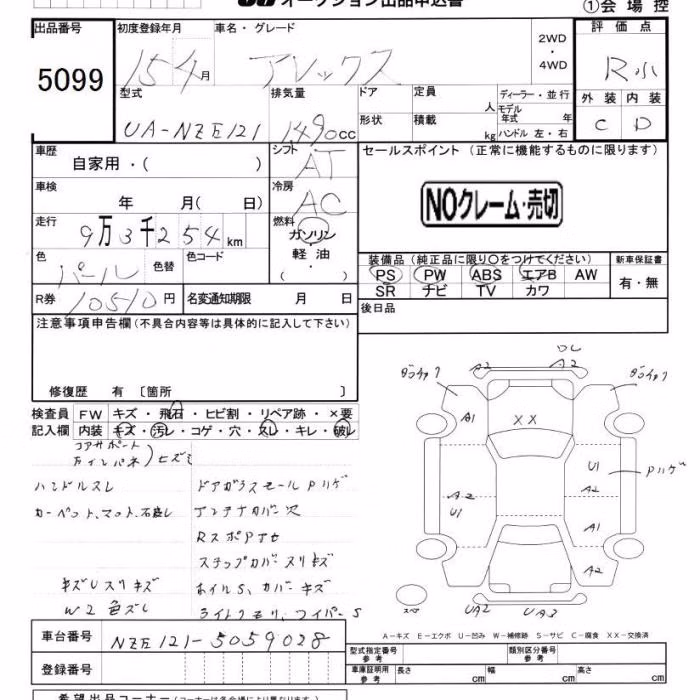 オークション出品申込書
①会場控
出品番号 初度登録年月 車名・グレード 評価点
5099 15 4月 アレックス 2WD・4WD R
型式 排気量 ドア 定員 人 ディーラー・並行 外装 内装
UA-NZE121 1490cc 形状 積載 kg モデル年式 年 ハンドル 左・右 C D
車歴 自家用・( ) シフト AT セールスポイント (正常に機能するものに限ります)
車検 年 月( 日) 冷房 AC NOクレーム・売切
走行 9万3千254km 燃料 ガソリン・軽油・( )
装備品 (純正品に限り○をつけてください) 新車保証書
色 パール 色替 色コード PS PW ABS エアB AW 有・無
SR ナビ TV カワ
R券 10510円 名変通知期限 月 日 後日品
注意事項申告欄 (不具合内容等は具体的に記入して下さい)
修復歴 有 〔箇所 〕
検査員 FW キズ・飛石・ヒビ割・リペア跡・×要
記入欄 内装 キズ・汚レ・コゲ・穴・スレ・キレ・破レ
コアサポート
ヒズミ
ハンドルスレ ドアガラスモール Pハゲ
カーペット、マット、 アンテナカバー欠
RスポPアセ
ステップカバースリキズ
キズUスリキズ ホイルS、カバーキズ
W2色ズレ ライトクモリ、ワイパーS
A2 A2
A1 XX
U1 Pハゲ
A2 A2
U1
A1
A2
スペ UA2 UA3
A-キズ E-エクボ U-凹み W-補修跡 S-サビ C-腐食 XX-交換済
車台番号 NZE121-5059028
型式指定番号 参考 類別区分番号 参考
登録番号 車庫証明用 参考 長さ cm 幅 cm 高さ cm
希望出品コーナー